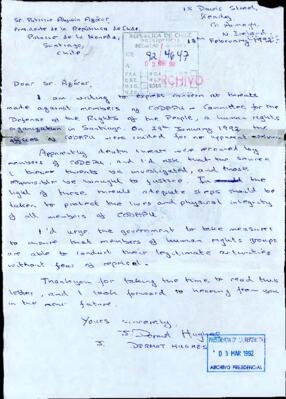 Sr. Patricio Aylwin Azócar,
Presidente de la República de Chile,
Palacio de la Moneda,
Santiago,
Chile
15 Davis Street,
Keady,
Co. Armagh,
N. Ireland
February 1992
REPUBLICA DE CHILE
92
ARCHIVO
Dear Sr. Azócar,
I am writing to express concern at threats
made against members of CODEPU - Committee for the
Defense of the Rights of the People, a human rights
organization in Santiago. On 29th January 1992 the
offices of CODEPU were
Apparently, death threats were
members of CODEPU, and I'd ask that the source
of these threats was investigated, and those
responsible be brought to justice. In the
light of these threats adequate steps should be
taken to protect the lives and physical integrity
of all members of CODEPU.
I'd urge the government to take measures
to ensure that members of human rights groups
are able to conduct their legitimate activities
without fear of reprisal.
Thankyou for taking the time to read this
letter, and I look forward to hearing from you
in the near future.
Yours sincerely,
J. Dermot Hughes
J. DERMOT HUGHES
PRESIDENCIA DE LA REPUBLICA
03 MAR 1992
ARCHIVO PRESIDENCIAL